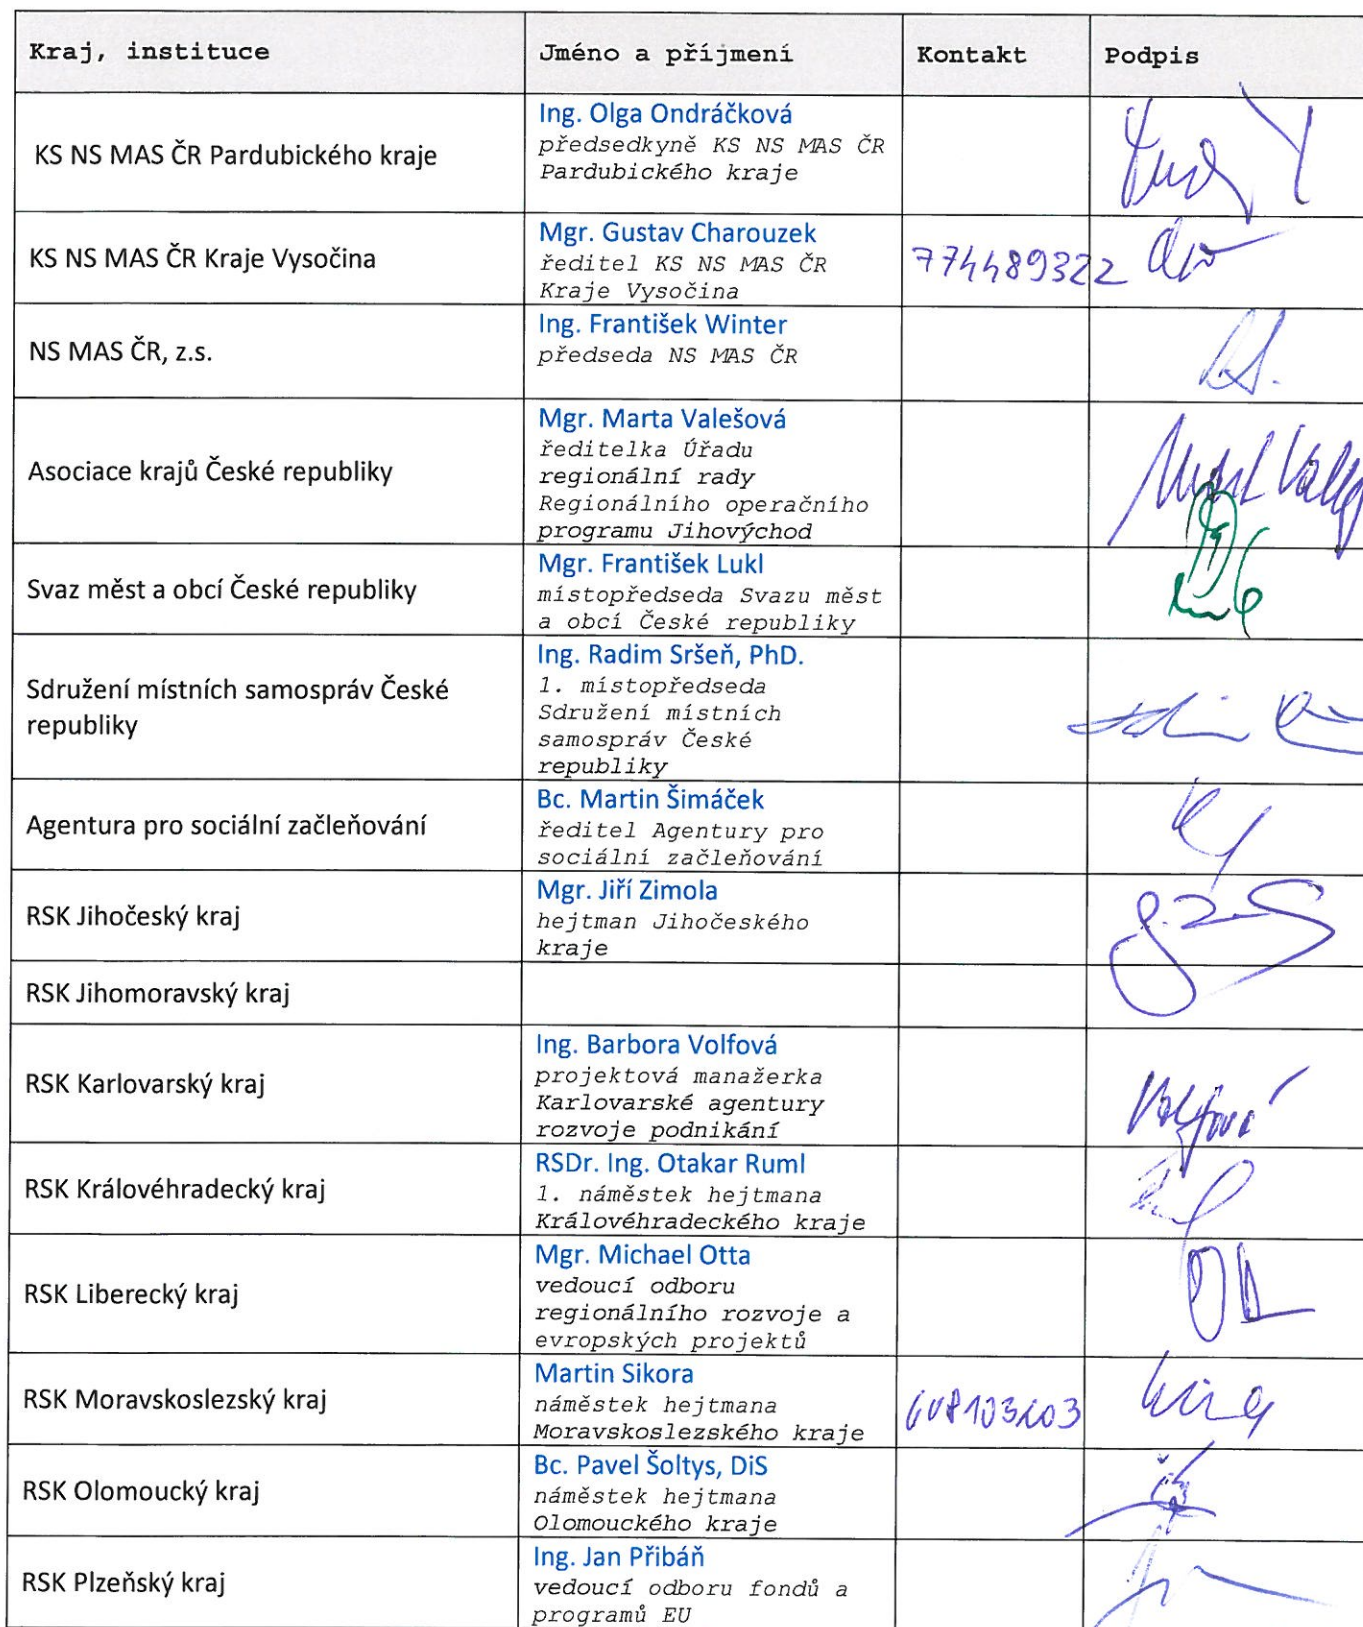 Kraj, instituce Jméno a příjmení Kontakt Podpis
KS NS MAS ČR Pardubického kraje
Ing. Olga Ondráčková
předsedkyně KS NS MAS ČR
Pardubického kraje
KS NS MAS ČR Kraje Vysočina
Mgr. Gustav Charouzek
ředitel KS NS MAS ČR
Kraje Vysočina
774489322
NS MAS ČR, z.s.
Ing. František Winter
předseda NS MAS ČR
Asociace krajů České republiky
Mgr. Marta Valešová
ředitelka Úřadu
regionální rady
Regionálního operačního
programu Jihovýchod
Svaz měst a obcí České republiky
Mgr. František Lukl
místopředseda Svazu měst
a obcí České republiky
Sdružení místních samospráv České
republiky
Ing. Radim Sršeň, PhD.
1. místopředseda
Sdružení místních
samospráv České
republiky
Agentura pro sociální začleňování
Bc. Martin Šimáček
ředitel Agentury pro
sociální začleňování
RSK Jihočeský kraj
Mgr. Jiří Zimola
hejtman Jihočeského
kraje
RSK Jihomoravský kraj
RSK Karlovarský kraj
Ing. Barbora Volfová
projektová manažerka
Karlovarské agentury
rozvoje podnikání
Volfová
RSK Královéhradecký kraj
RSDr. Ing. Otakar Ruml
1. náměstek hejtmana
Královéhradeckého kraje
RSK Liberecký kraj
Mgr. Michael Otta
vedoucí odboru
regionálního rozvoje a
evropských projektů
RSK Moravskoslezský kraj
Martin Sikora
náměstek hejtmana
Moravskoslezského kraje
RSK Olomoucký kraj
Bc. Pavel Šoltys, DiS
náměstek hejtmana
Olomouckého kraje
RSK Plzeňský kraj
Ing. Jan Přibáň
vedoucí odboru fondů a
programů EU